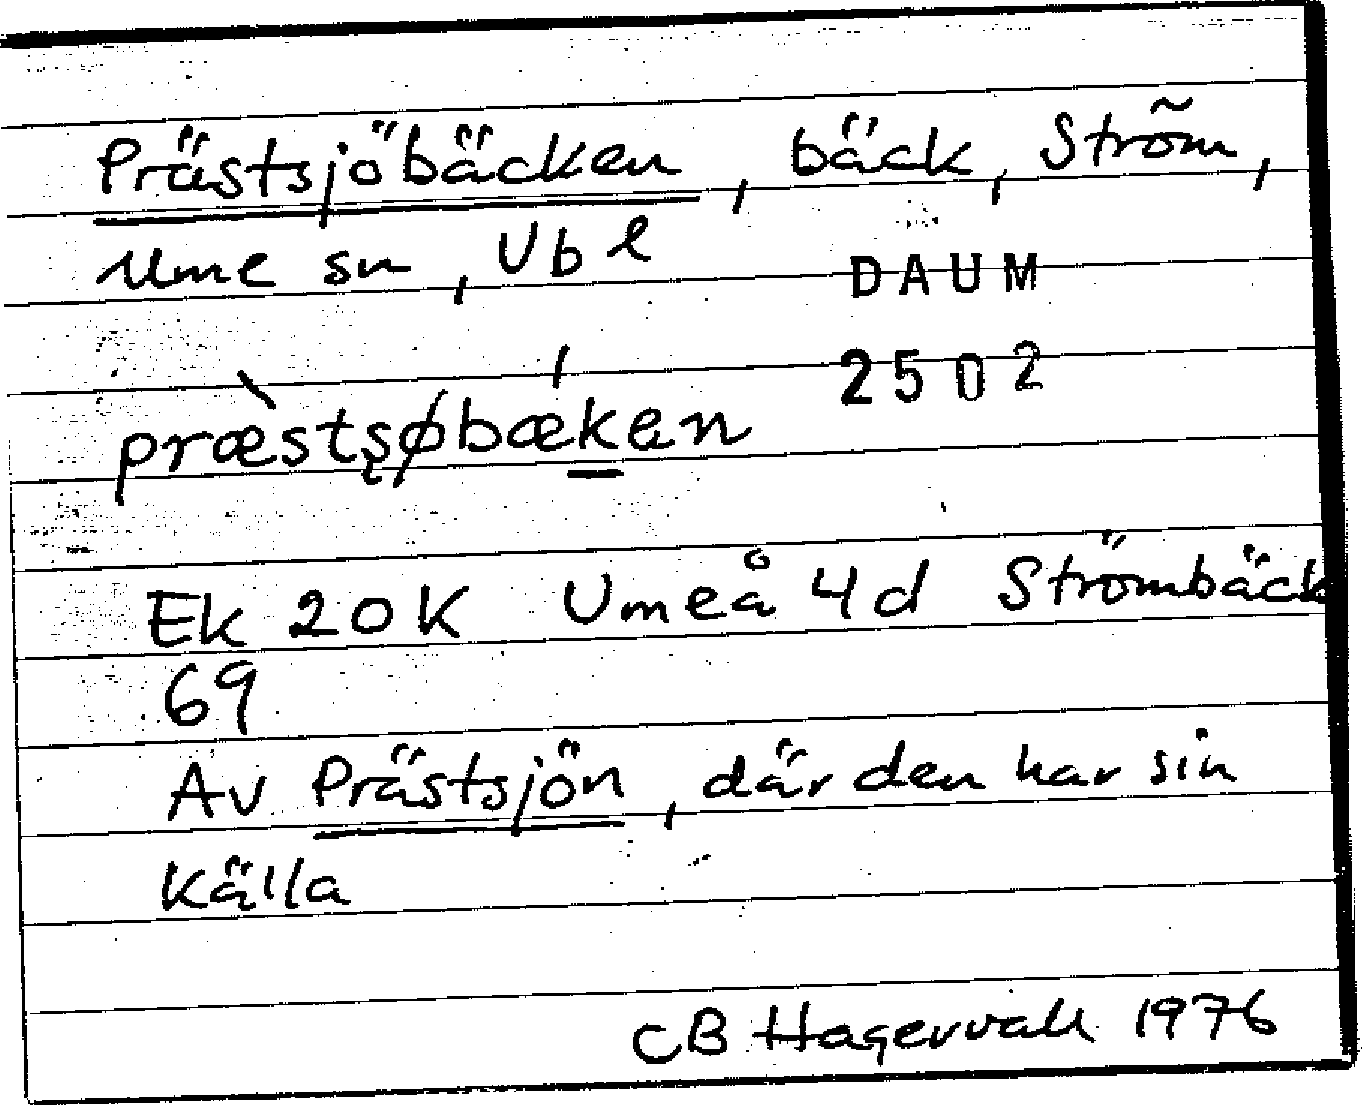 Prästsjöbäcken, bäck, Ström,
Ume sn, Vb l
DAUM
2502
præ̀stşøbǽḵen
Ek 20K Umeå 4d Strömbäck
69
Av Prästsjön, där den har sin
källa
CB Hagervall 1976